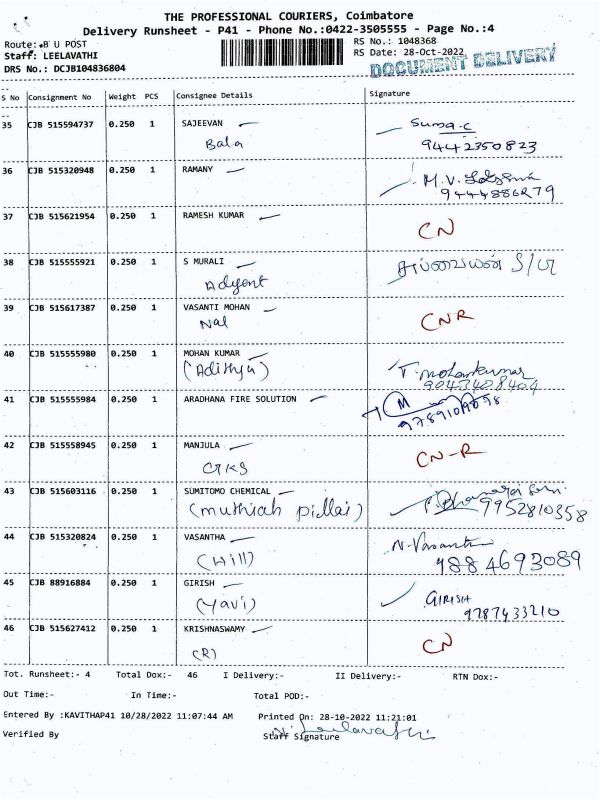 THE PROFESSIONAL COURIERS, Coimbatore
Delivery Runsheet - P41 - Phone No.:0422-3505555 - Page No.:4
Route: B U POST RS No.: 1048368
Staff: LEELAVATHI RS Date: 28-Oct-2022
DOCUMENT DELIVERY
DRS No.: DCJB104836804
S No Consignment No Weight PCS Consignee Details Signature
35 CJB 515594737 0.250 1 SAJEEVAN
Bala 9442350823
36 CJB 515320948 0.250 1 RAMANY M.V.
37 CJB 515621954 0.250 1 RAMESH KUMAR
CN
38 CJB 515555921 0.250 1 S MURALI
Adyent
39 CJB 515617387 0.250 1 VASANTI MOHAN
Nal CNR
40 CJB 515555980 0.250 1 MOHAN KUMAR
(Adithya) T. mohankumar
9043408404
41 CJB 515555984 0.250 1 ARADHANA FIRE SOLUTION M
42 CJB 515558945 0.250 1 MANJULA
GKS CN-R
43 CJB 515603116 0.250 1 SUMITOMO CHEMICAL
(muthiah pillai) 9952810358
44 CJB 515320824 0.250 1 VASANTHA N. Vasantha
(Hill) 9884693089
45 CJB 88916884 0.250 1 GIRISH GIRISH
(Yavi) 9787433210
46 CJB 515627412 0.250 1 KRISHNASWAMY CN
(R)
Tot. Runsheet:- 4 Total Dox:- 46 I Delivery:- II Delivery:- RTN Dox:-
Out Time:- In Time:- Total POD:-
Entered By :KAVITHAP41 10/28/2022 11:07:44 AM Printed On: 28-10-2022 11:21:01
N. Leelavathi
Verified By Staff Signature